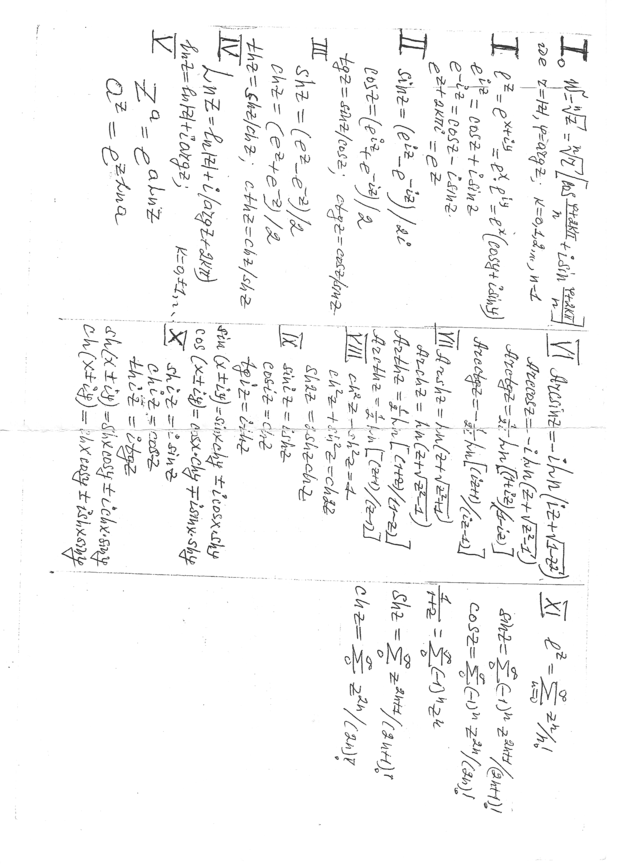 I₀ w = ⁿ√z = ⁿ√|z| [cos (φ+2kπ)/n + i sin (φ+2kπ)/n]
где r=|z|, φ=argz. k=0,1,2,..,n-1
I e^z = e^(x+iy) = e^x·e^(iy) = e^x(cosy+isiny)
e^(iz) = cosz + isinz
e^(-iz) = cosz - isinz
e^(z+2kπi) = e^z
II sinz = (e^(iz) - e^(-iz))/2i
cosz = (e^(iz) + e^(-iz))/2
tgz = sinz/cosz; ctgz = cosz/sinz
III shz = (e^z - e^(-z))/2
chz = (e^z + e^(-z))/2
thz = shz/chz; cthz = chz/shz
IV Lnz = ln|z| + i(argz + 2kπ)
lnz = ln|z| + iargz; k=0,±1,...
V z^a = e^(aLnz)
a^z = e^(zLna)
VI Arcsinz = -iLn(iz+√(1-z²))
Arccosz = -iLn(z+√(z²-1))
Arctgz = 1/2i Ln[(1+iz)/(1-iz)]
Arcctgz = -1/2i Ln[(iz+1)/(iz-1)]
VII Arshz = Ln(z+√(z²+1))
Archz = Ln(z+√(z²-1))
Arthz = 1/2 Ln[(1+z)/(1-z)]
Arcthz = 1/2 Ln[(z+1)/(z-1)]
VIII ch²z - sh²z = 1
ch²z + sh²z = ch2z
sh2z = 2shzchz
IX siniz = ishz
cosiz = chz
tgiz = ithz
sin(x±iy) = sinxchy ± icosx·shy
cos(x±iy) = cosx·chy ∓ isinx·shy
X shiz = isinz
chiz = cosz
thiz = itgz
sh(x±iy) = shxcosy ± ichx·siny
ch(x±iy) = chxcosy ± ishxsiny
XI e^z = ∞Σn=0 z^n/n!
sinz = ∞Σ0 (-1)^n z^(2n+1)/(2n+1)!
cosz = ∞Σ0 (-1)^n z^(2n)/(2n)!
1/(1+z) = ∞Σ0 (-1)^n z^n
shz = ∞Σ0 z^(2n+1)/(2n+1)!
chz = ∞Σ0 z^(2n)/(2n)!